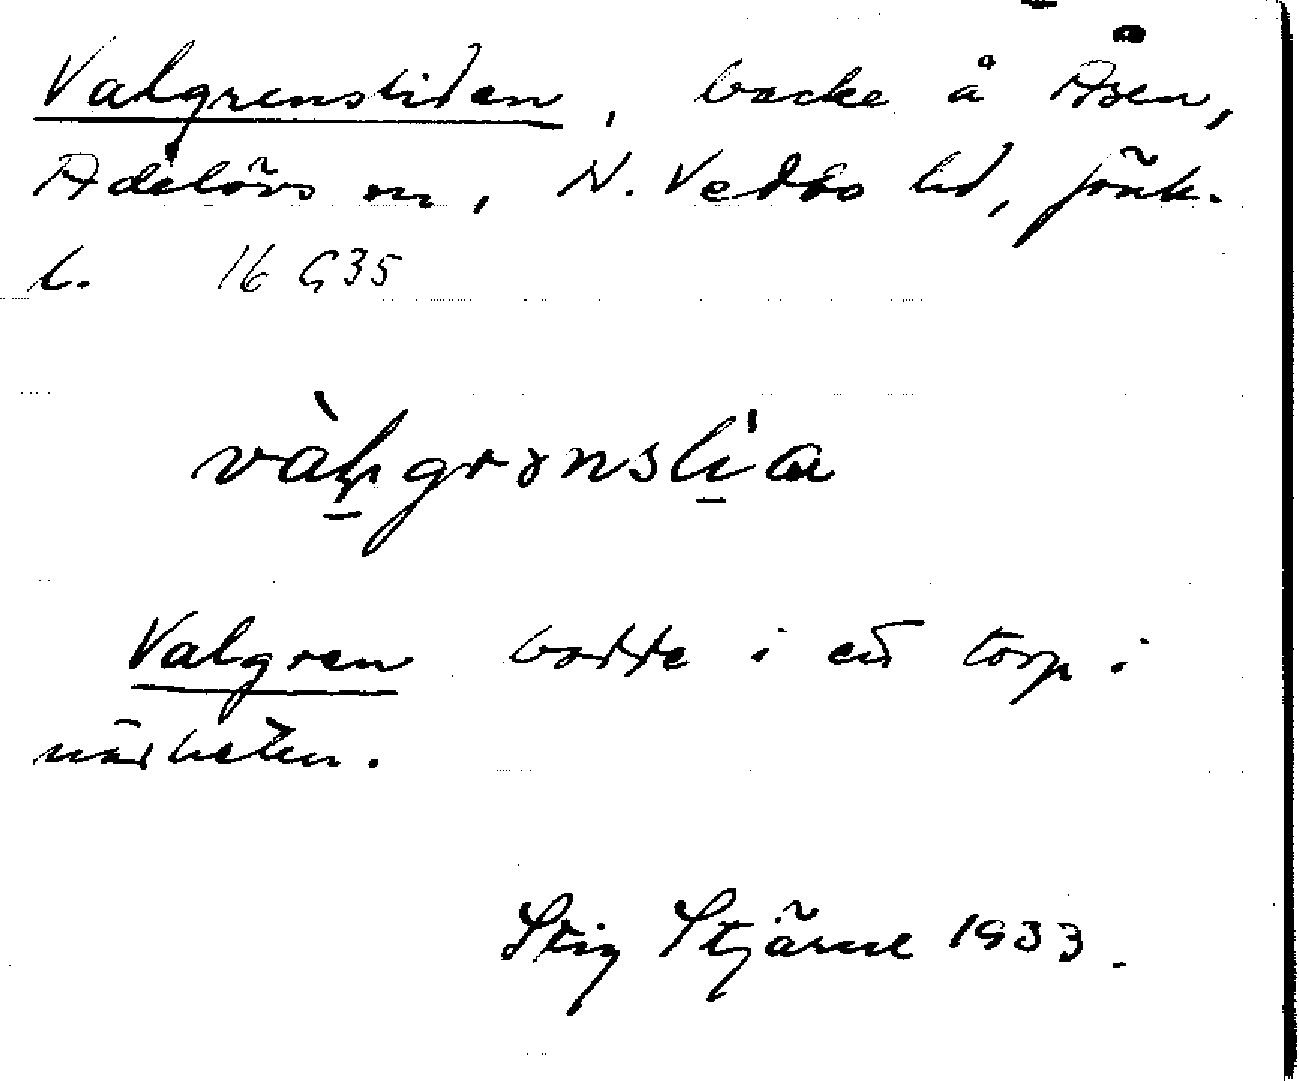 Valgrensliden, backe å Åsen,
Adelövs sn, N. Vedbo hd, Jönk.
l. 16 G35
vàl̥grənslìa
Valgren bodde i ett torp i
närheten.
Stig Stjärne 1933.